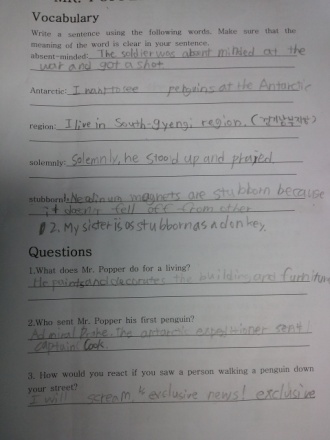 Vocabulary
Write a sentence using the following words. Make sure that the
meaning of the word is clear in your sentence.
absent-minded: The soldier was absent minded at the
war and got a shot
Antarctic: I want to see penguins at the Antarctic
region: I live in South-gyengi region. (경기남부지방)
solemnly: Solemnly, he stood up and prayed
stubborn: magnets are stubborn because
it doesn't fell off from other
2. My sister is as stubborn as a donkey.
Questions
1.What does Mr. Popper do for a living?
He paints and decorates the building and furniture
2.Who sent Mr. Popper his first penguin?
Admiral The antarctic sent
captain Cook.
3. How would you react if you saw a person walking a penguin down
your street?
I will scream, "exclusive news! exclusive